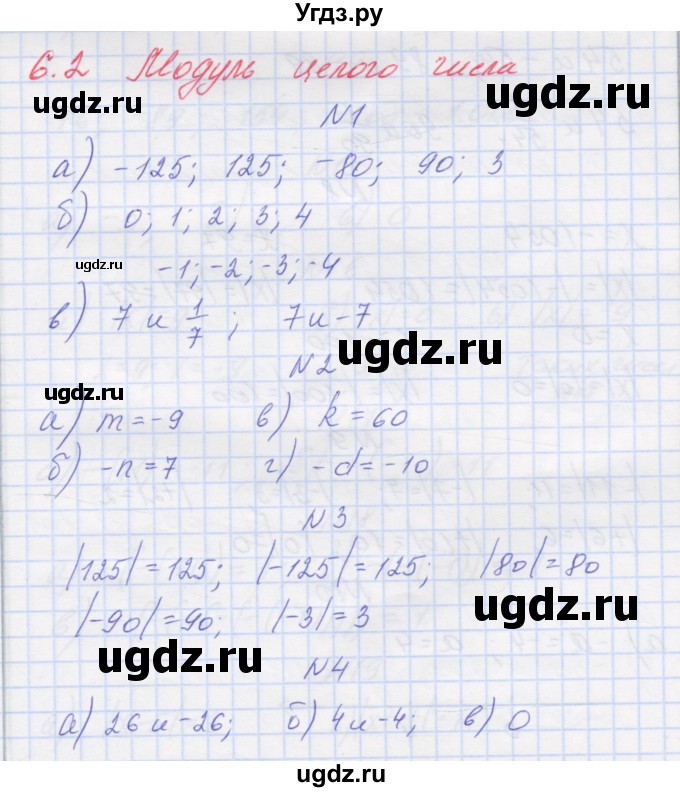 Угдз.ру
6.2 Модуль целого числа
ugdz.ru ugdz.ru
N1
а) -125; 125; -80; 90; 3
б) 0; 1; 2; 3; 4
ugdz.ru -1; -2; -3; -4
в) 7 и 1/7; 7 и -7
ugdz.ru
N2
ugdz.ru
а) m = -9 в) k = 60
б) -n = 7 г) -d = -10
N3
|125| = 125; |-125| = 125; |80| = 80
ugdz.ru
|-90| = 90; |-3| = 3
ugdz.ru
N4
а) 26 и -26; б) 4 и -4; в) 0
ugdz.ru